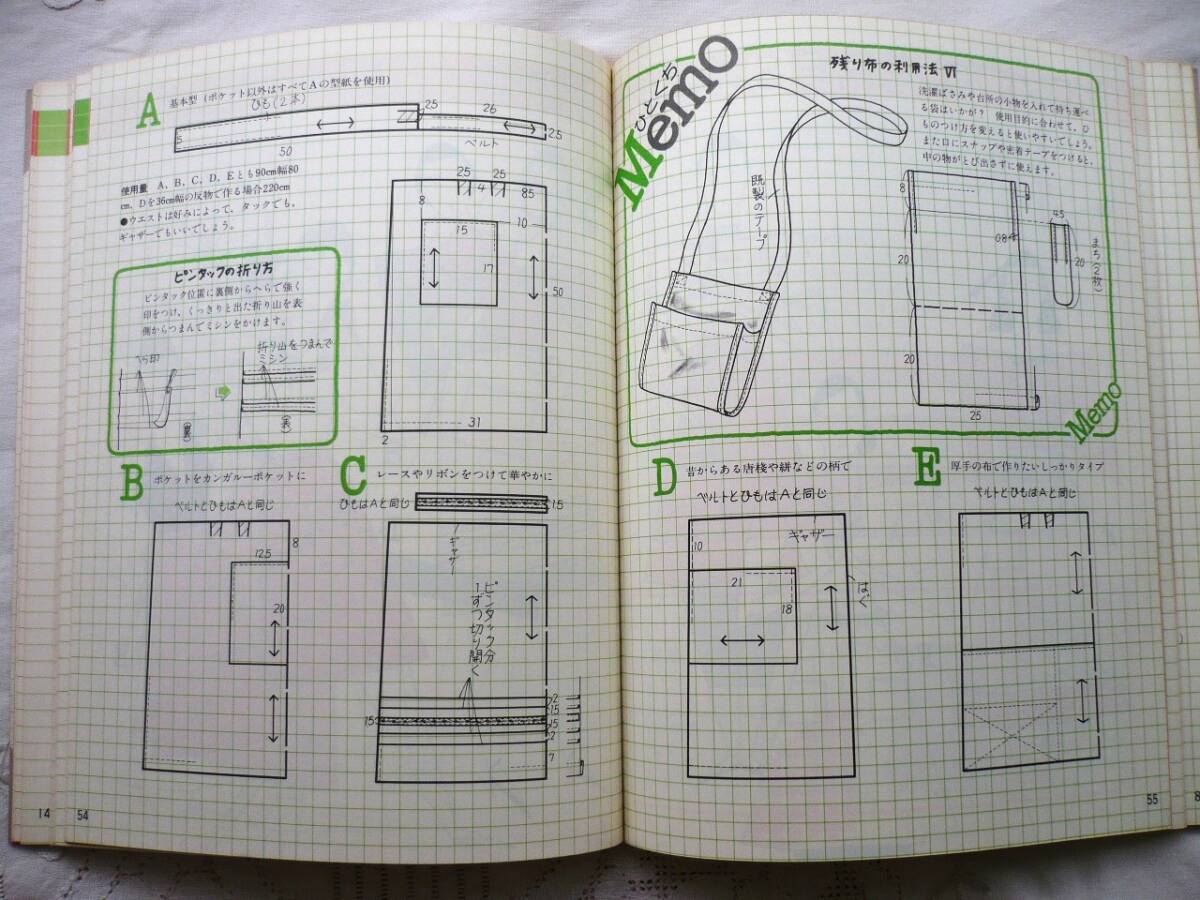 A
基本型(ポケット以外はすべてAの型紙を使用)
ひも(2本)
5
50
25
26
25
ベルト
使用量 A、B、C、D、Eとも90cm幅80
cm、Dを36cm幅の反物で作る場合220cm
●ウエストは好みによって、タックでも、
ギャザーでもいいでしょう。
25
25
4
85
8
15
10
17
50
31
2
ピンタックの折り方
ピンタック位置に裏側からへらで強く
印をつけ、くっきりと出た折り山を表
側からつまんでミシンをかけます。
へら印
(裏)
折り山をつまんで
ミシン
(表)
B
ポケットをカンガルーポケットに
ベルトとひもはAと同じ
8
12.5
20
C
レースやリボンをつけて華やかに
ひもはAと同じ
1.5
ギャザー
ピンタック分
1ずつ切り開く
2
1.5
15
15
2
7
14
54
ひとくち
Memo
残り布の利用法 Ⅵ
洗濯ばさみや台所の小物を入れて持ち運べ
る袋はいかが? 使用目的に合わせて、ひ
ものつけ方を変えると使いやすいでしょう。
また口にスナップや密着テープをつけると、
中の物がとび出さずに使えます。
既製のテープ
8
0.8
20
20
25
4.5
20
まち(2枚)
Memo
D
昔からある唐棧や絣などの柄で
ベルトとひもはAと同じ
10
ギャザー
21
18
はぐ
E
厚手の布で作りたいしっかりタイプ
ベルトとひもはAと同じ
55
8